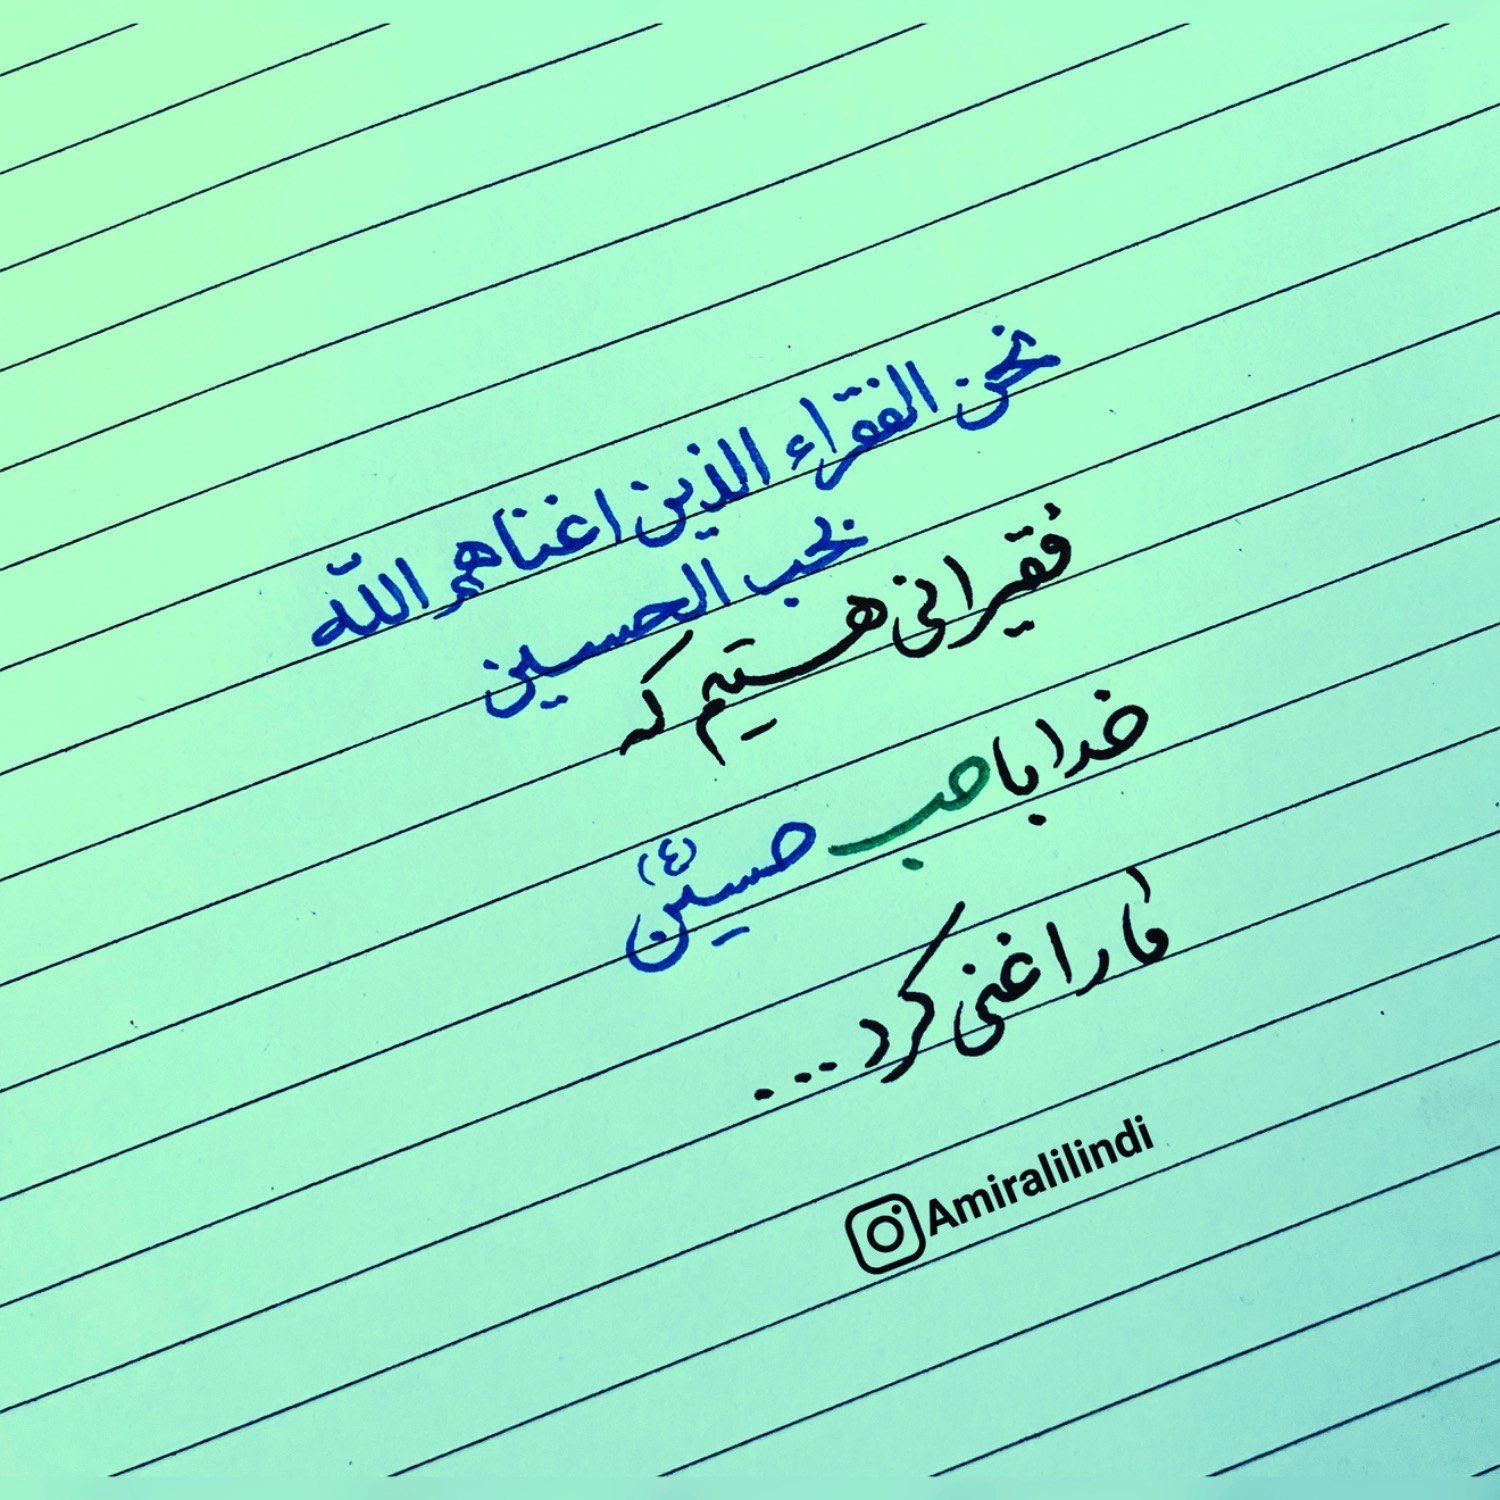 نحن الفقراء الذین اغناهم اللّه
بحب الحسین
فقیرانی هستیم که
خدا با حب حسین (ع)
ما را غنی کرد ...
Amiralilindi